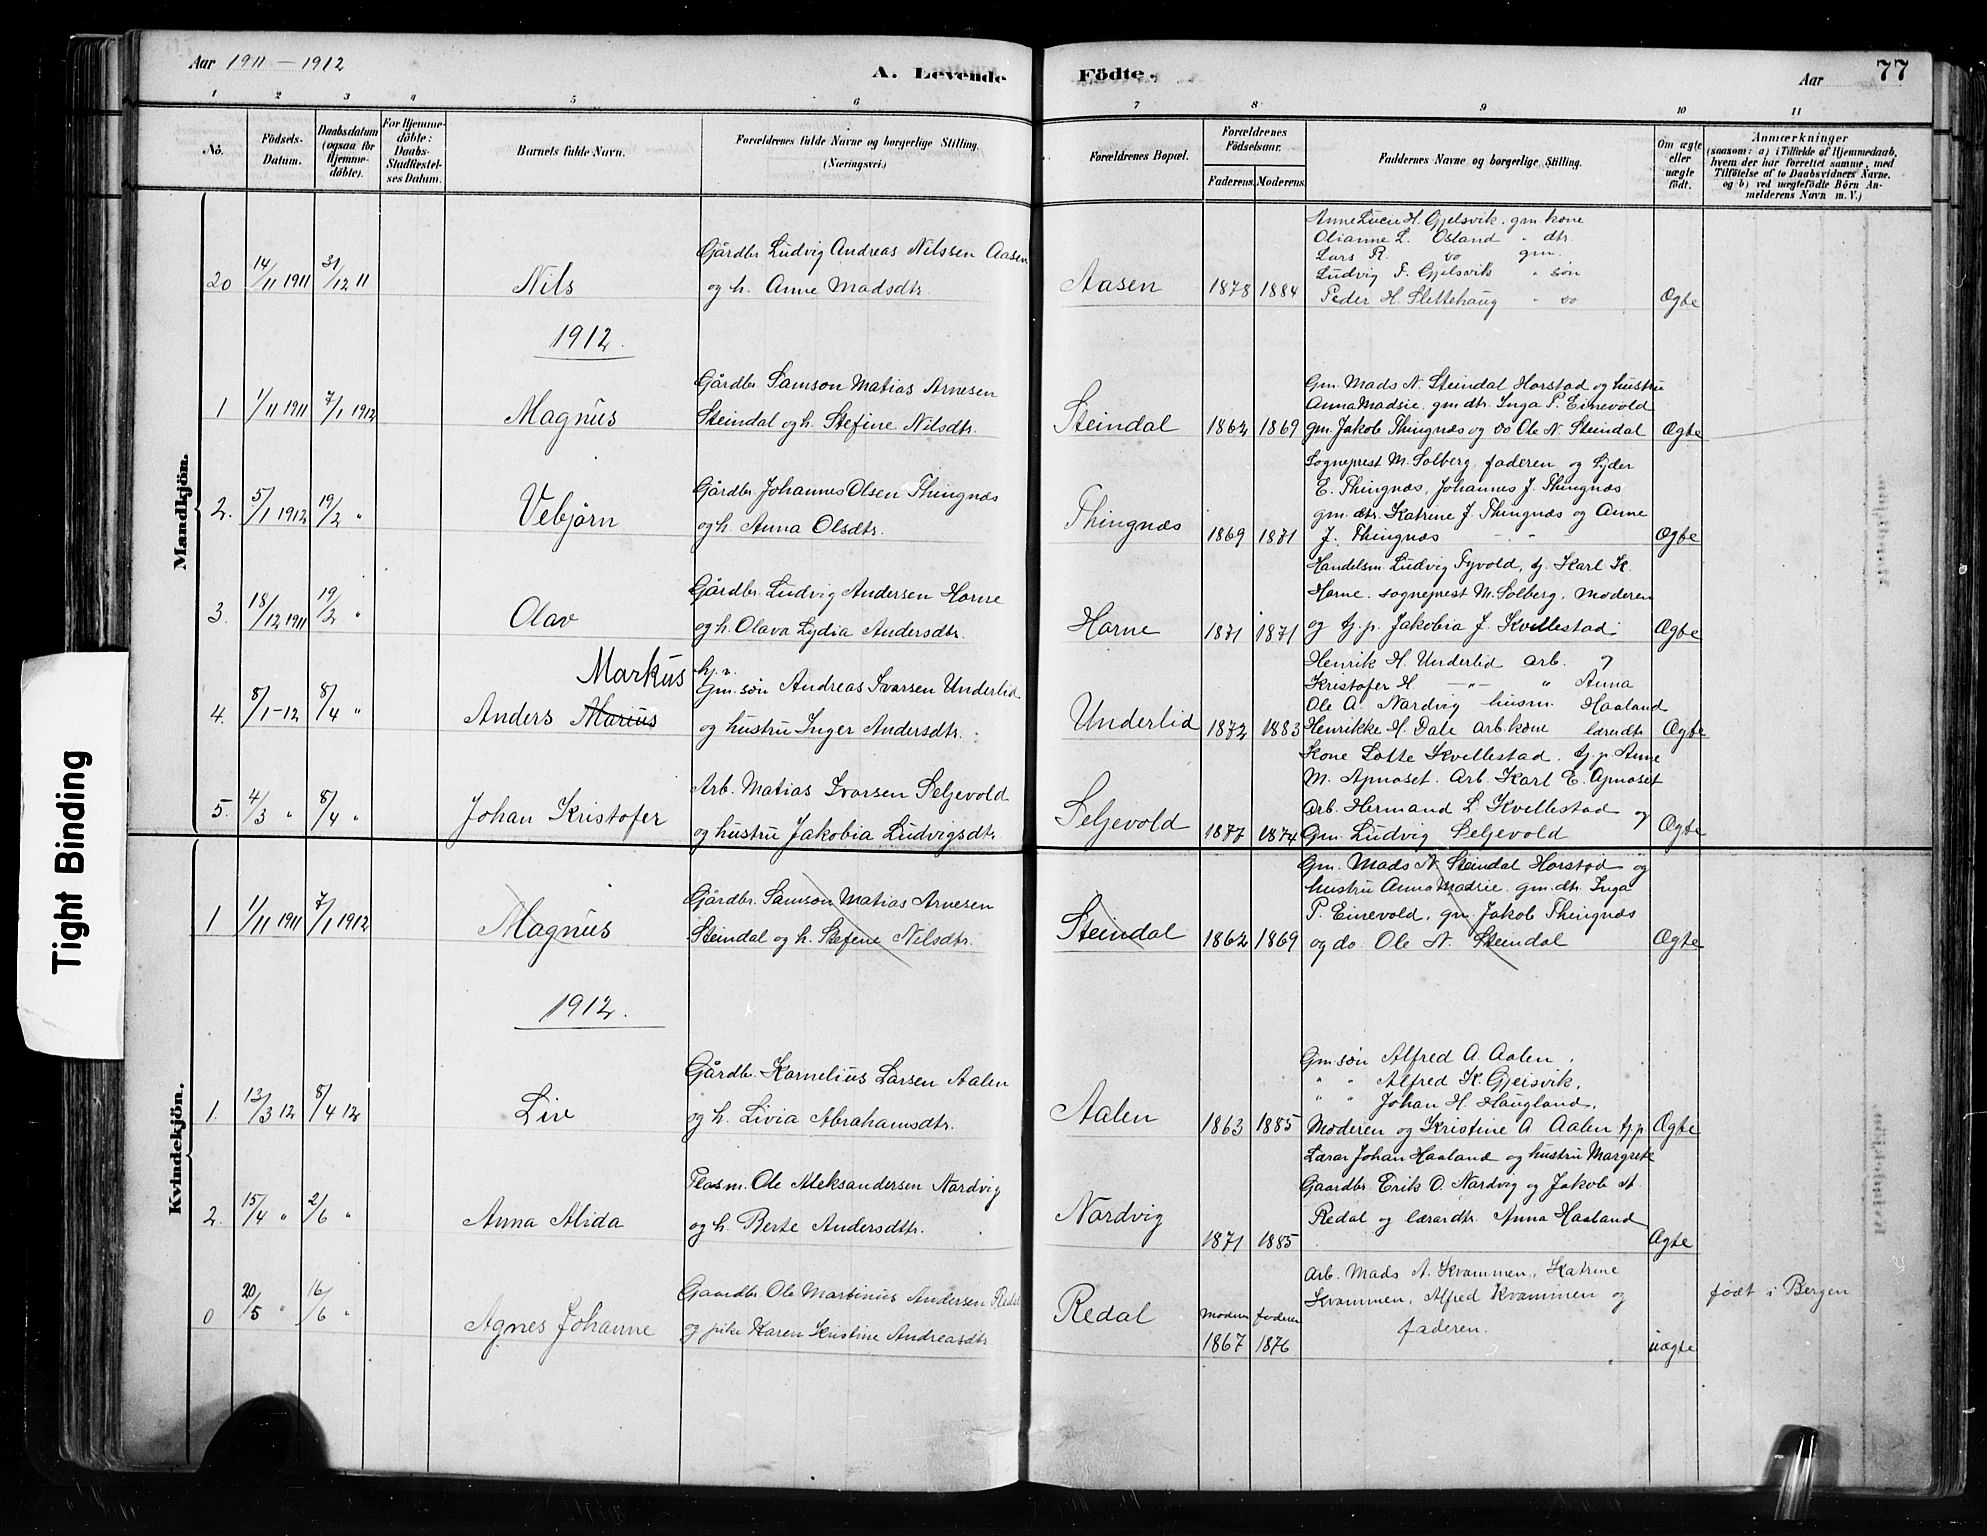 Aar 1911 – 1912
A. Levende Födte.
Aar
77
1 2 3 4 5 6 7 8 9 10 11
No.
Födsels-Datum.
Daabsdatum (ogsaa for Hjemme-döbte).
For Hjemme-döbte: Daabs-Stadfæstel-ses Datum.
Barnets fulde Navn.
Forældrenes fulde Navne og borgerlige Stilling. (Næringsvei.)
Forældrenes Bopæl.
Forældrenes Födselsaar.
Faderens. Moderens.
Faddernes Navne og borgerlige Stilling.
Om ægte eller uægte födt.
Anmærkninger
(saasom: a) i Tilfælde af Hjemmedaab,
hvem der har forrettet samme, med
Tilföielse af to Daabsvidners Navne.
og b) ved uægtefödte Börn An-
melderens Navn m. V.)
Mandkjön.
20 14/11 1911 31/12 11 Nils
Gårdbr. Ludvig Andreas Nilssen Aasen
og h. Anne Madsdtr.
Aasen 1878 1884
Anne Lucie H. Gjelsvik, gm. kone
Olianne L. Osland " dtr.
Lars R. do gm.
Ludvig F. Gjelsvik " søn
Peder H. Slettehaug " do
Ægte
1912.
1 1/11 1911 7/1 1912 Magnus
Gårdbr. Samson Matias Arnesen
Steindal og h. Stefine Nilsdtr.
Steindal 1862 1869
Gm. Mads N. Steindal Horstad og hustru
Anna Madsie. gm. dtr. Inga P. Einevold
gm. Jakob Thingnæs og do Ole N. Steindal
Ægte
2. 5/1 1912 19/2 " Vebjørn
Gårdbr. Johannes Olsen Thingnæs
og h. Anna Olsdtr.
Thingnæs 1869 1871
Sogneprest M. Solberg, faderen og Lyder
E. Thingnæs, Johannes J. Thingnæs
gm. dtr. Katrine J. Thingnæs og Anne
J. Thingnæs - " -
Ægte
3. 18/12 1911 19/2 " Olav
Gårdbr. Ludvig Andersen Horne
og h. Olava Lydia Andersdtr.
Horne 1871 1871
Handelsm. Ludvig Tyvold, tj. Karl K.
Horne. sogneprest M. Solberg, moderen
og tj. p. Jakobia J. Kvellestad.
Ægte
4. 8/1-12 8/4 " Anders Marius Markus
Gm. søn Andreas Ivarsen Underlid
og hustru Inger Andersdtr.
Underlid 1872 1883
Henrik H. Underlid arb.
Kristofer H. — " — " Anna
Ole A. Nordvig husm. Haaland
Henrikke H. Dale arb. kone lærerdtr
Ægte
5. 4/3 " 8/4 " Johan Kristofer
Arb. Matias Ivarsen Seljevold
og hustru Jakobia Ludvigsdtr
Seljevold 1877 1874
Kone Lotte Kvellestad. tj. p. Anne
M. Apnøset. Arb. Karl E. Apnøset
Arb. Hermand L. Kvellestad og
Gm. Ludvig Seljevold
Ægte
Kvindekjön.
1 1/11 1911 7/1 1912 Magnus
Gårdbr. Samson Matias Arnesen
Steindal og h. Stefine Nilsdtr.
Steindal 1862 1869
Gm. Mads N. Steindal Horstad og
hustru Anna Madsie. gm. dtr. Inga
P. Einevold, gm. Jakob Thingnæs
og do. Ole N. Steindal
Ægte
1912.
1. 13/3 12 8/4 12 Liv
Gårdbr. Kornelius Larsen Aalen
og h. Livia Abrahamsdtr.
Aalen 1863 1885
Gm. søn Alfred A. Aalen,
" " Alfred K. Gjelsvik,
" " Johan H. Haugland,
Moderen og Kristine A. Aalen tj. p.
Ægte
2. 15/4 " 2/6 " Anna Alida
Plasm. Ole Aleksandersen Nordvig
og h. Berte Andersdtr.
Nordvig 1871 1885
Lærar Johan Haaland og hustru Margrete
Gaardbr. Erik O. Nordvig og Jakob A.
Redal og lærardtr. Anna Haaland
Ægte
0 20/5 " 16/6 " Agnes Johanne
Gaardbr. Ole Martinius Andersen Redal
og pike Karen Kristine Andreasdtr
Redal moderen 1867 faderen 1876
Arb. Mads A. Kvammen, Katrine
Kvammen, Alfred Kvammen og
faderen.
uægte
født i Bergen
Tight Binding